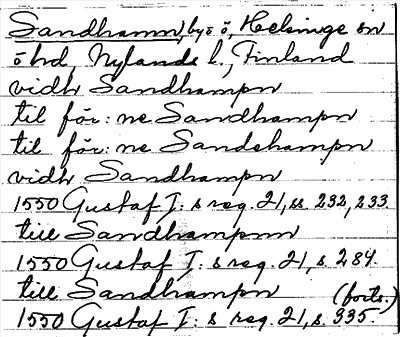 Sandhamn, by o ö, Helsinge sn
ö hd, Nylands l., Finland
vidh Sandhampn
til för:ne Sandhampn
til för:ne Sandehampn
vidh Sandhampn
1550 Gustaf I:s reg. 21, ss. 232, 233
till Sandhampnn
1550 Gustaf I:s reg. 21, s. 284.
till Sandhampn (forts.)
1550 Gustaf I:s reg. 21, s. 335.